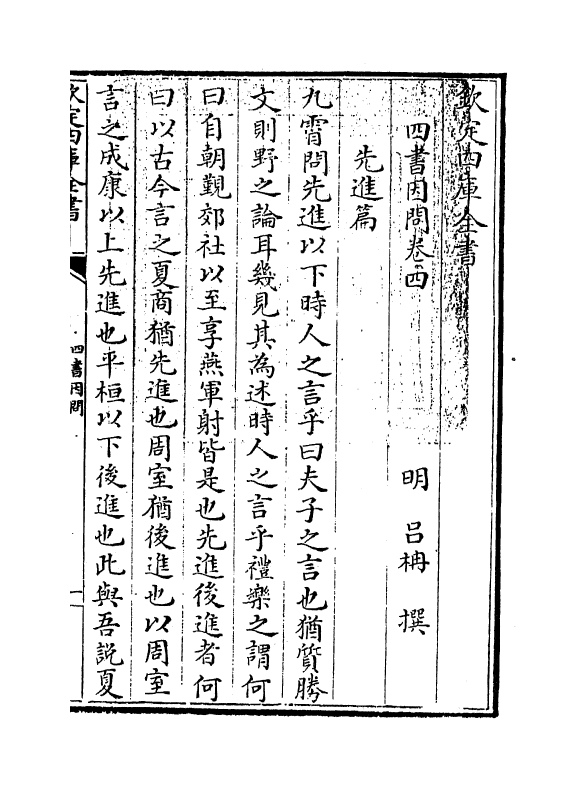 欽定四庫全書
四書因問卷四
明 呂柟 撰
先進篇
九霄問先進以下時人之言乎曰夫子之言也猶質勝
文則野之論耳幾見其為述時人之言乎禮樂之謂何
曰自朝覲郊社以至享燕軍射皆是也先進後進者何
曰以古今言之夏商猶先進也周室猶後進也以周室
言之成康以上先進也平桓以下後進也此與吾說夏
欽定四庫全書
四書因問
一